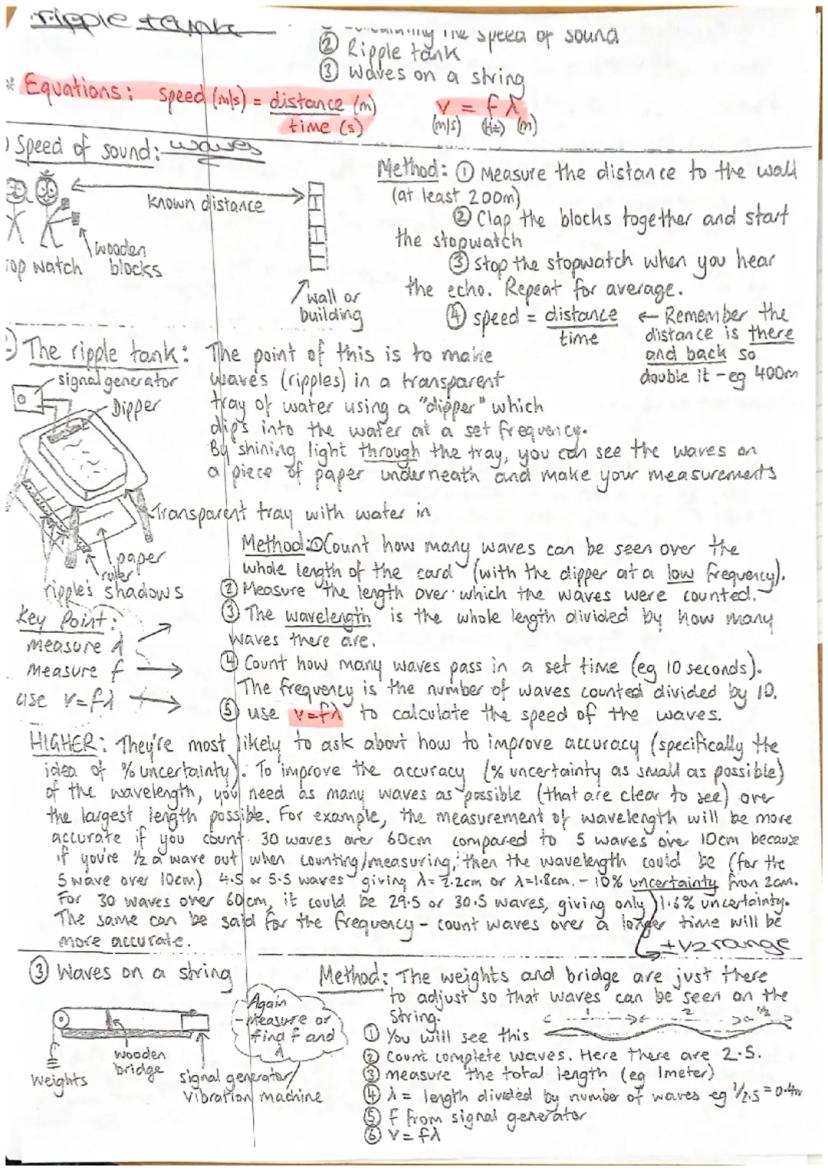 ripple tank
the speed of sound
② Ripple tank
③ Waves on a string
* Equations: speed (m/s) = distance (m)
time (s)
v = f λ
(m/s) (Hz) (m)
Speed of sound: waves
known distance
wooden
blocks
watch
wall or
building
Method: ① Measure the distance to the wall
(at least 200m)
② Clap the blocks together and start
the stopwatch
③ Stop the stopwatch when you hear
the echo. Repeat for average.
④ speed = distance
time
← Remember the
distance is there
and back so
double it - eg 400m
The ripple tank:
signal generator
Dipper
The point of this is to make
waves (ripples) in a transparent
tray of water using a "dipper" which
dips into the water at a set frequency.
By shining light through the tray, you can see the waves on
a piece of paper underneath and make your measurements
Transparent tray with water in
paper
ruler
ripple's shadows
Method: ① Count how many waves can be seen over the
whole length of the card (with the dipper at a low frequency).
② Measure the length over which the waves were counted.
③ The wavelength is the whole length divided by how many
waves there are.
④ Count how many waves pass in a set time (eg 10 seconds).
The frequency is the number of waves counted divided by 10.
⑤ use v=fλ to calculate the speed of the waves.
Key Point:
measure λ
measure f
use v=fλ
HIGHER: They're most likely to ask about how to improve accuracy (specifically the
idea of % uncertainty). To improve the accuracy (% uncertainty as small as possible)
of the wavelength, you need as many waves as possible (that are clear to see) over
the largest length possible. For example, the measurement of wavelength will be more
accurate if you count 30 waves over 60cm compared to 5 waves over 10cm because
if you're ½ a wave out when counting/measuring, then the wavelength could be (for the
5 wave over 10cm) 4.5 or 5.5 waves giving λ=2.2cm or λ=1.8cm. - 10% uncertainty from 2cm.
For 30 waves over 60cm, it could be 29.5 or 30.5 waves, giving only 1.6% uncertainty.
The same can be said for the frequency - count waves over a longer time will be
more accurate.
range
③ Waves on a string
wooden
bridge
weights
signal generator/
vibration machine
Again
- measure or
find f and
λ
Method: The weights and bridge are just there
to adjust so that waves can be seen on the
string.
1 2 ½
① You will see this
② Count complete waves. Here there are 2.5.
③ measure the total length (eg 1meter)
④ λ = length divided by number of waves eg 1/2.5 = 0.4m
⑤ f from signal generator
⑥ v = fλ